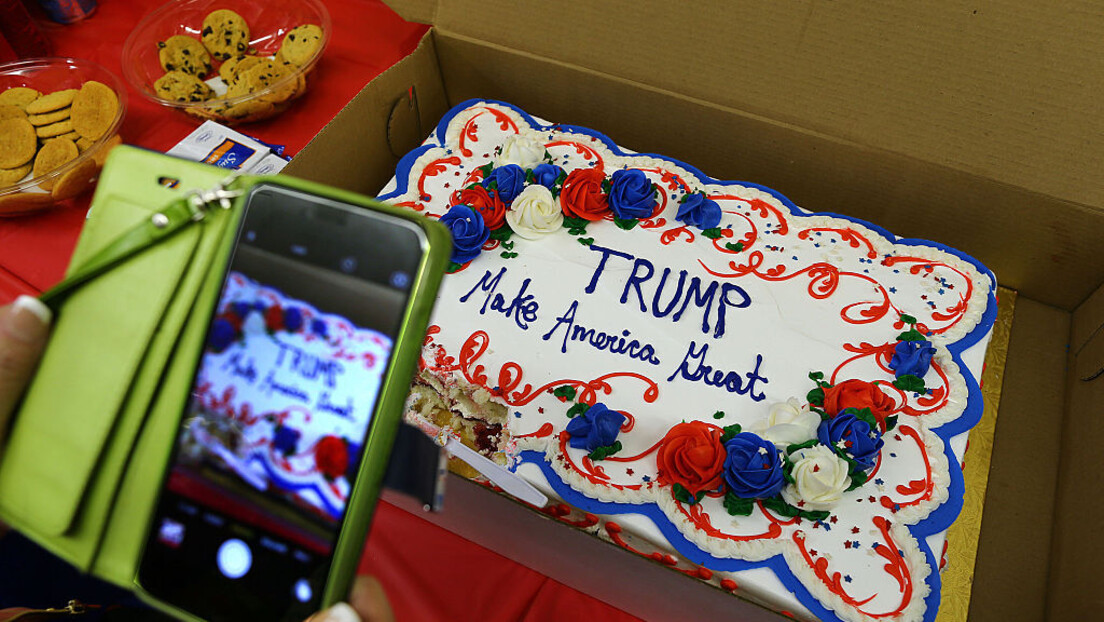 TRUMP
Make America Great
TRUMP
Make America Great